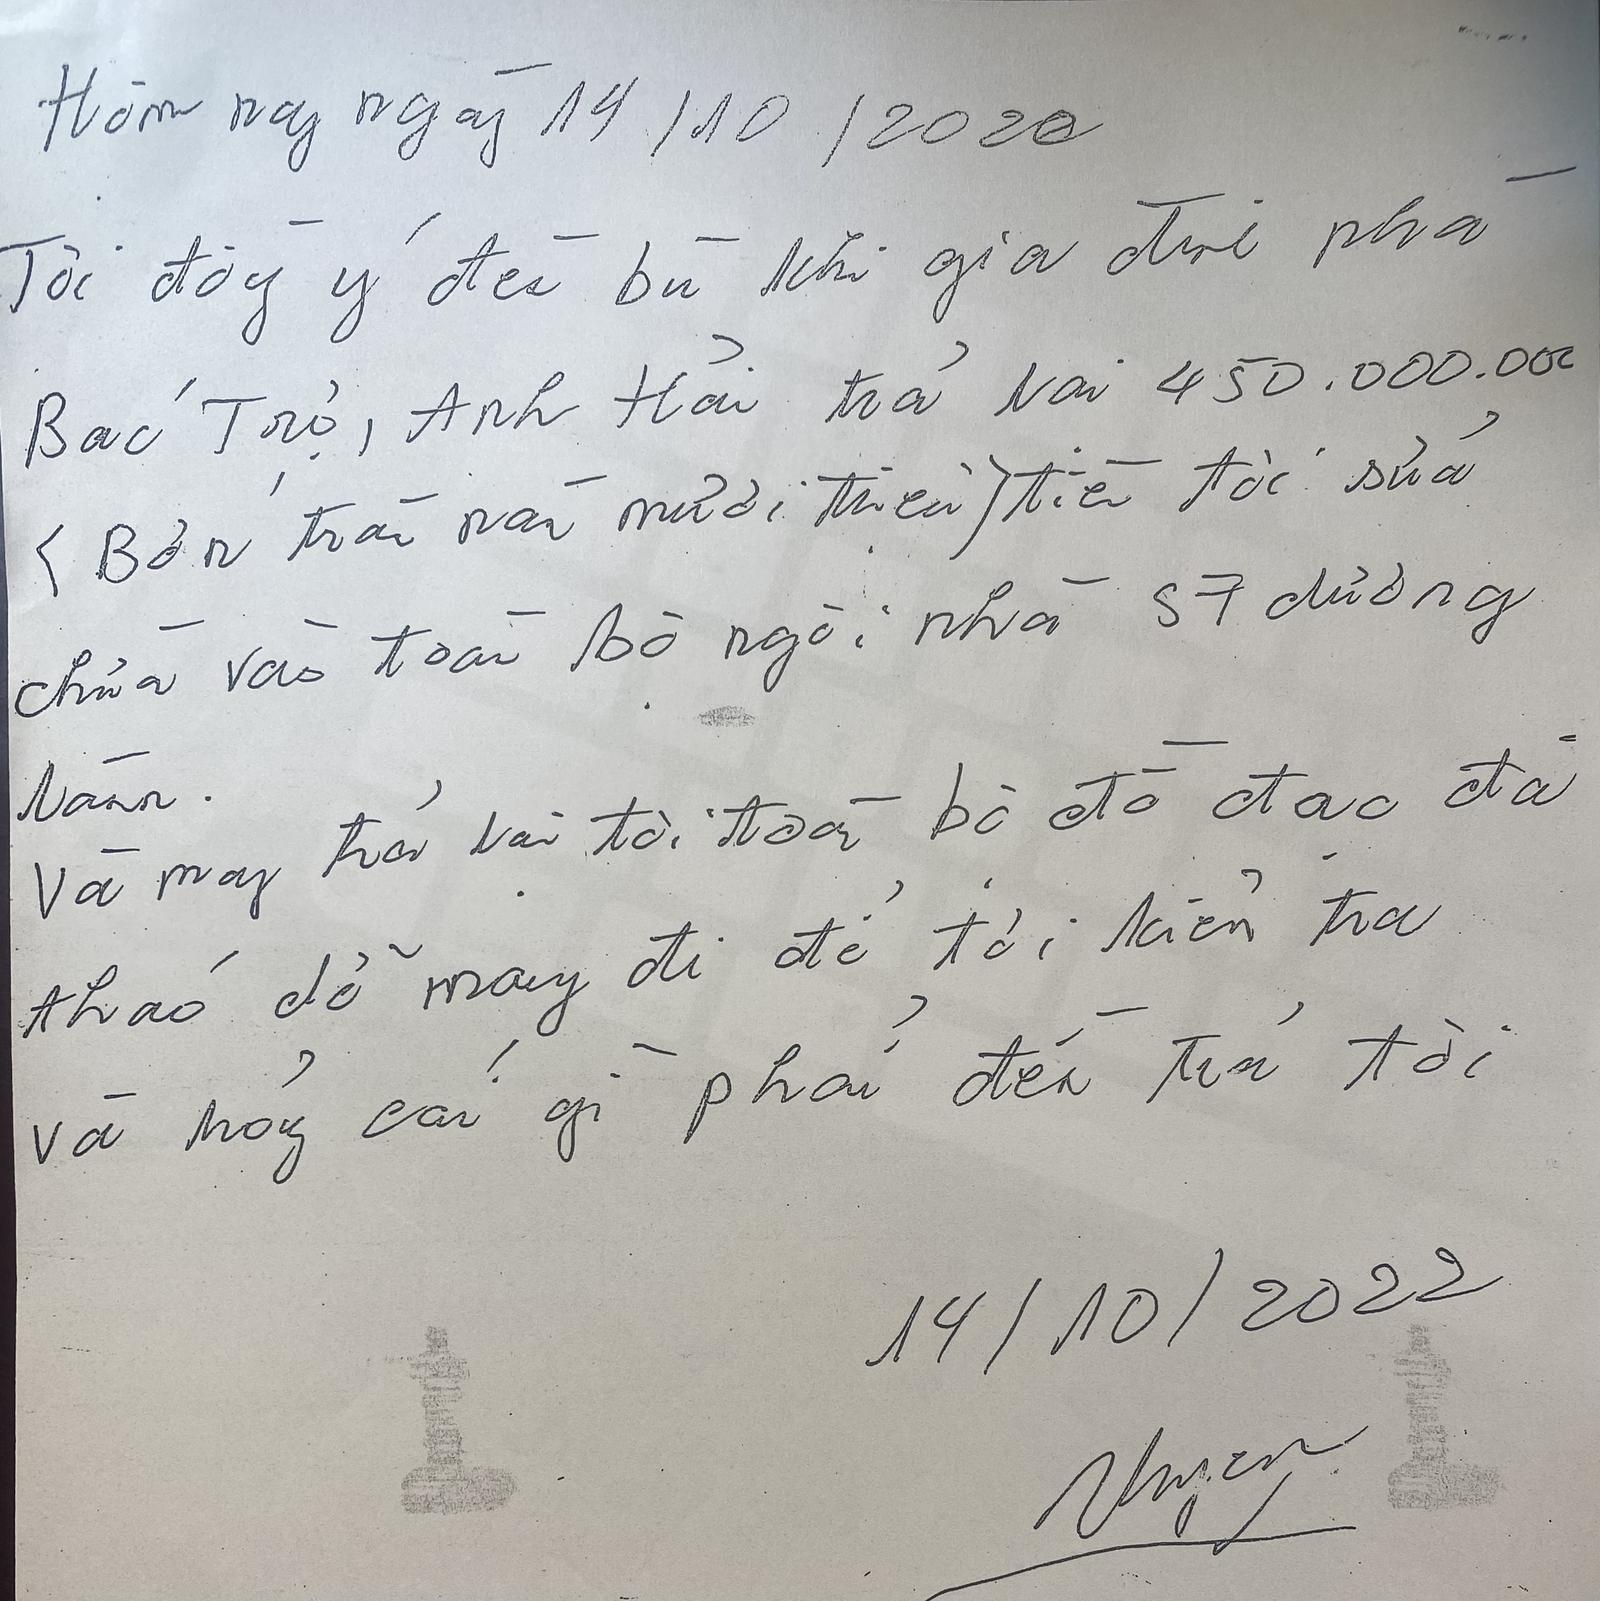 Hôm nay ngày 14/10/2022
Tôi đồng ý đền bù khi gia đình phải
Bác Trợ, Anh Hải trả lại 450.000.000
(Bốn trăm năm mươi triệu) tiền tôi sửa
chữa vào toàn bộ ngôi nhà 57 đường
Láng.
Và máy trả lại tôi toàn bộ đồ đạc đã
tháo dỡ mang đi để tôi kiểm tra
và hỏng cái gì phải đền trả tôi
14/10/2022